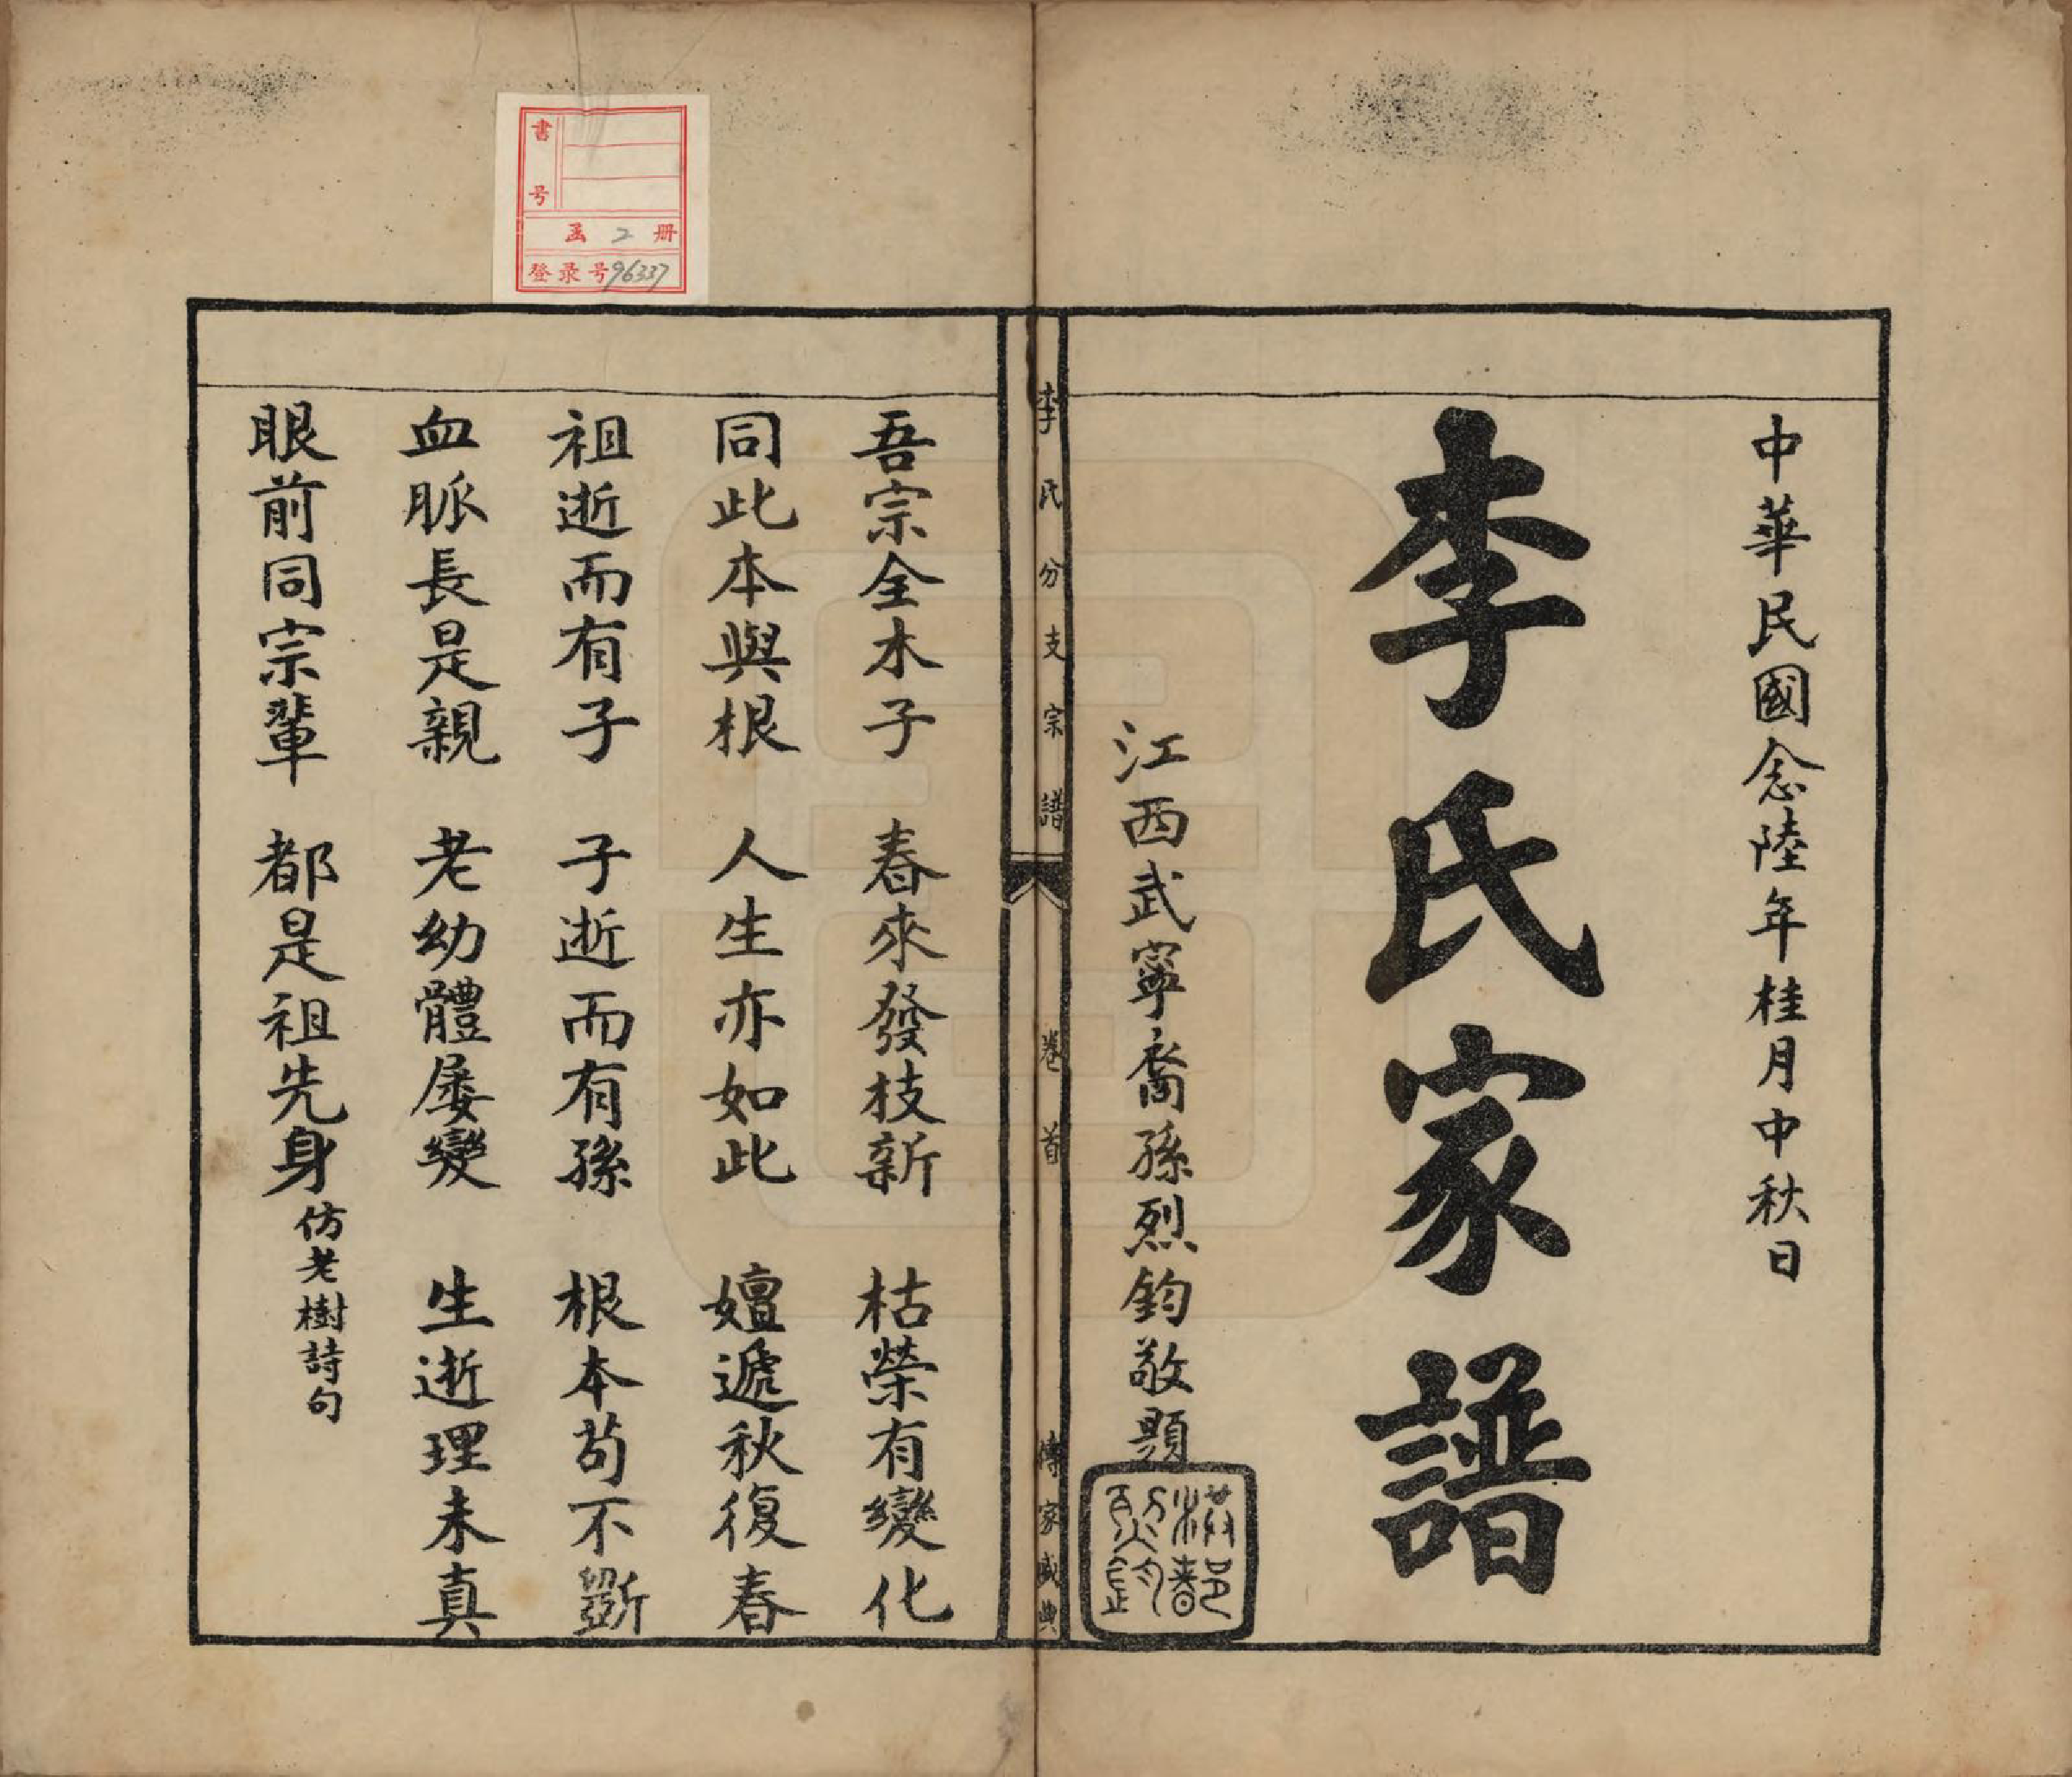 中華民國念陸年桂月中秋日
李氏家譜
江西武寧裔孫烈鈞敬題
李氏分支宗譜
卷首
傳家盛典
吾宗全木子 春來發技新 枯榮有變化
同此本與根 人生亦如此 嬗遞秋復春
祖逝而有子 子逝而有孫 根本苟不斷
血脈長是親 老幼體屡變 生逝理未真
眼前同宗輩 都是祖先身 仿老樹詩句
書号
函 2 册
登录号96337